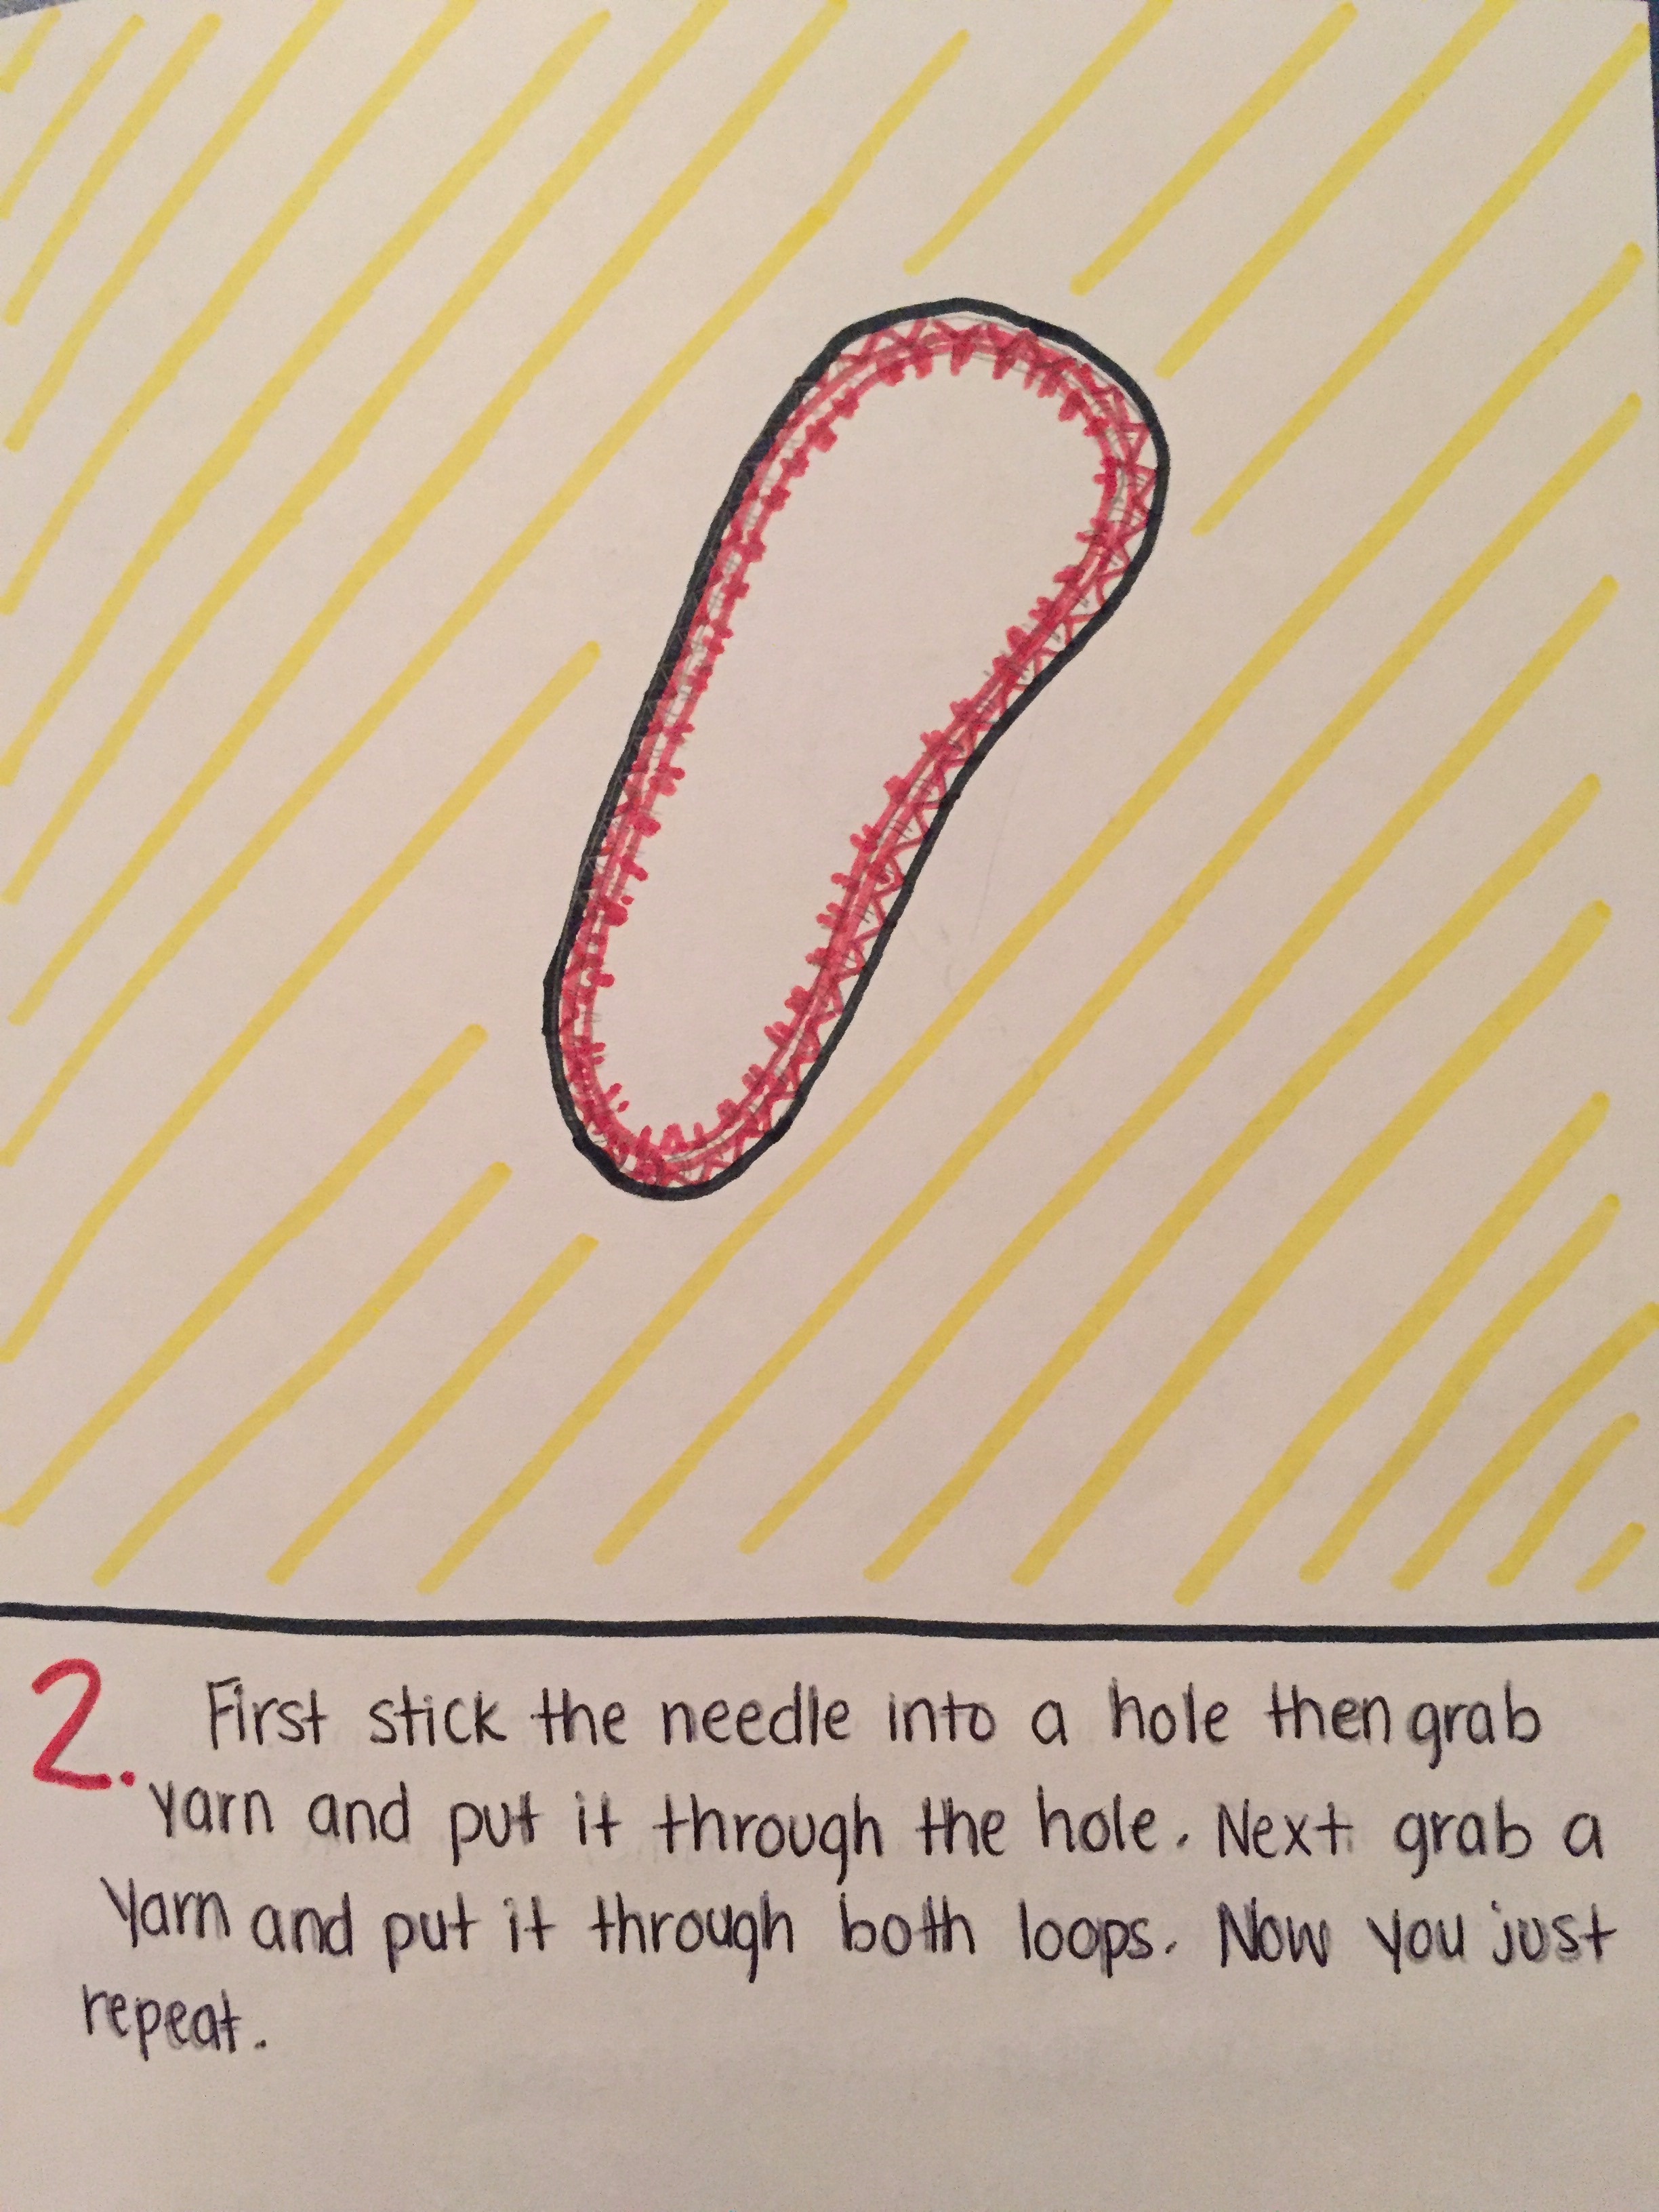 2. First stick the needle into a hole then grab
yarn and put it through the hole. Next grab a
yarn and put it through both loops. Now you just
repeat.